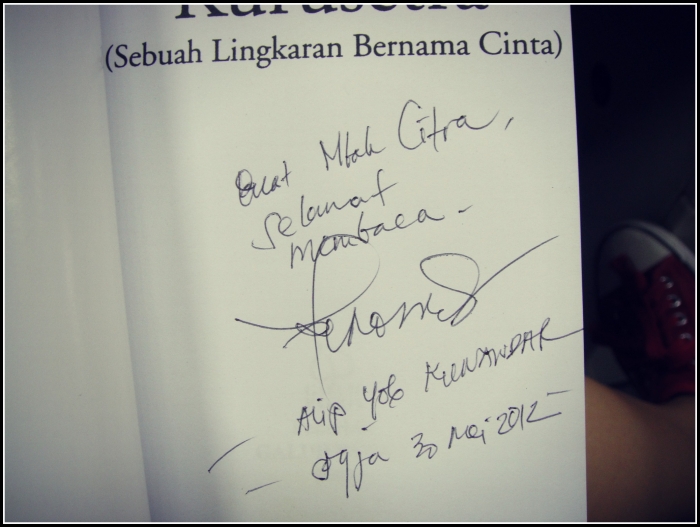 Kurusetra
(Sebuah Lingkaran Bernama Cinta)
Buat Mbak Citra,
Selamat
membaca -
Alip Yog KUNANDAR
Jogja 30 Mei 2012